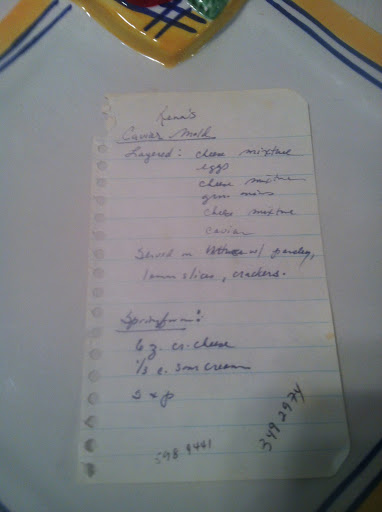 Rena's
Caviar Mold
Layered: cheese mixture
eggs
cheese mixture
green onions
cheese mixture
caviar
Served on w/ parsley,
lemon slices, crackers.
Springform:
6 z. cr. cheese
1/3 c. sour cream
s & p
598 9441
349 2974